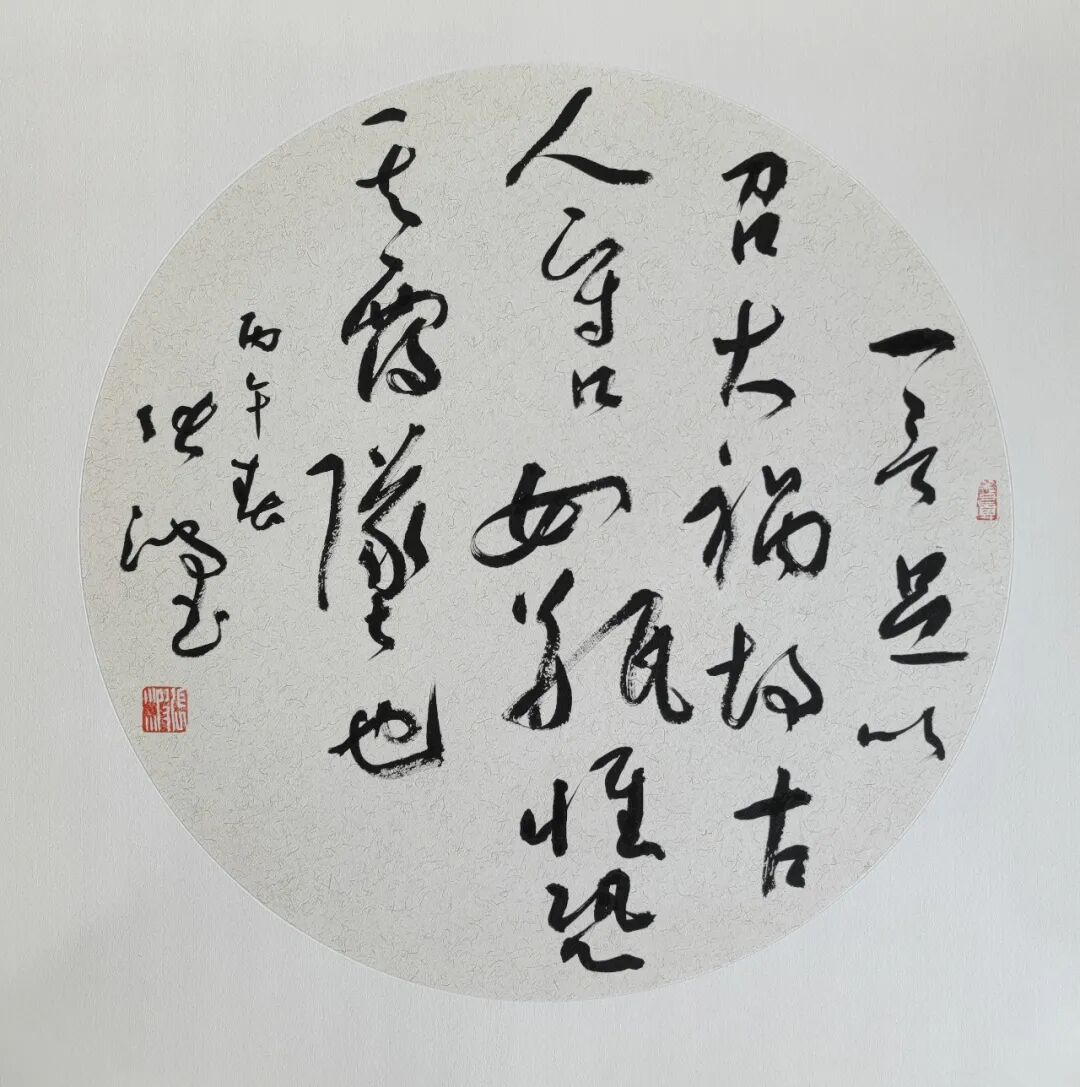 一言足以
召大祸故古
人守口如瓶惟恐
其覆墜也
丙午春
张